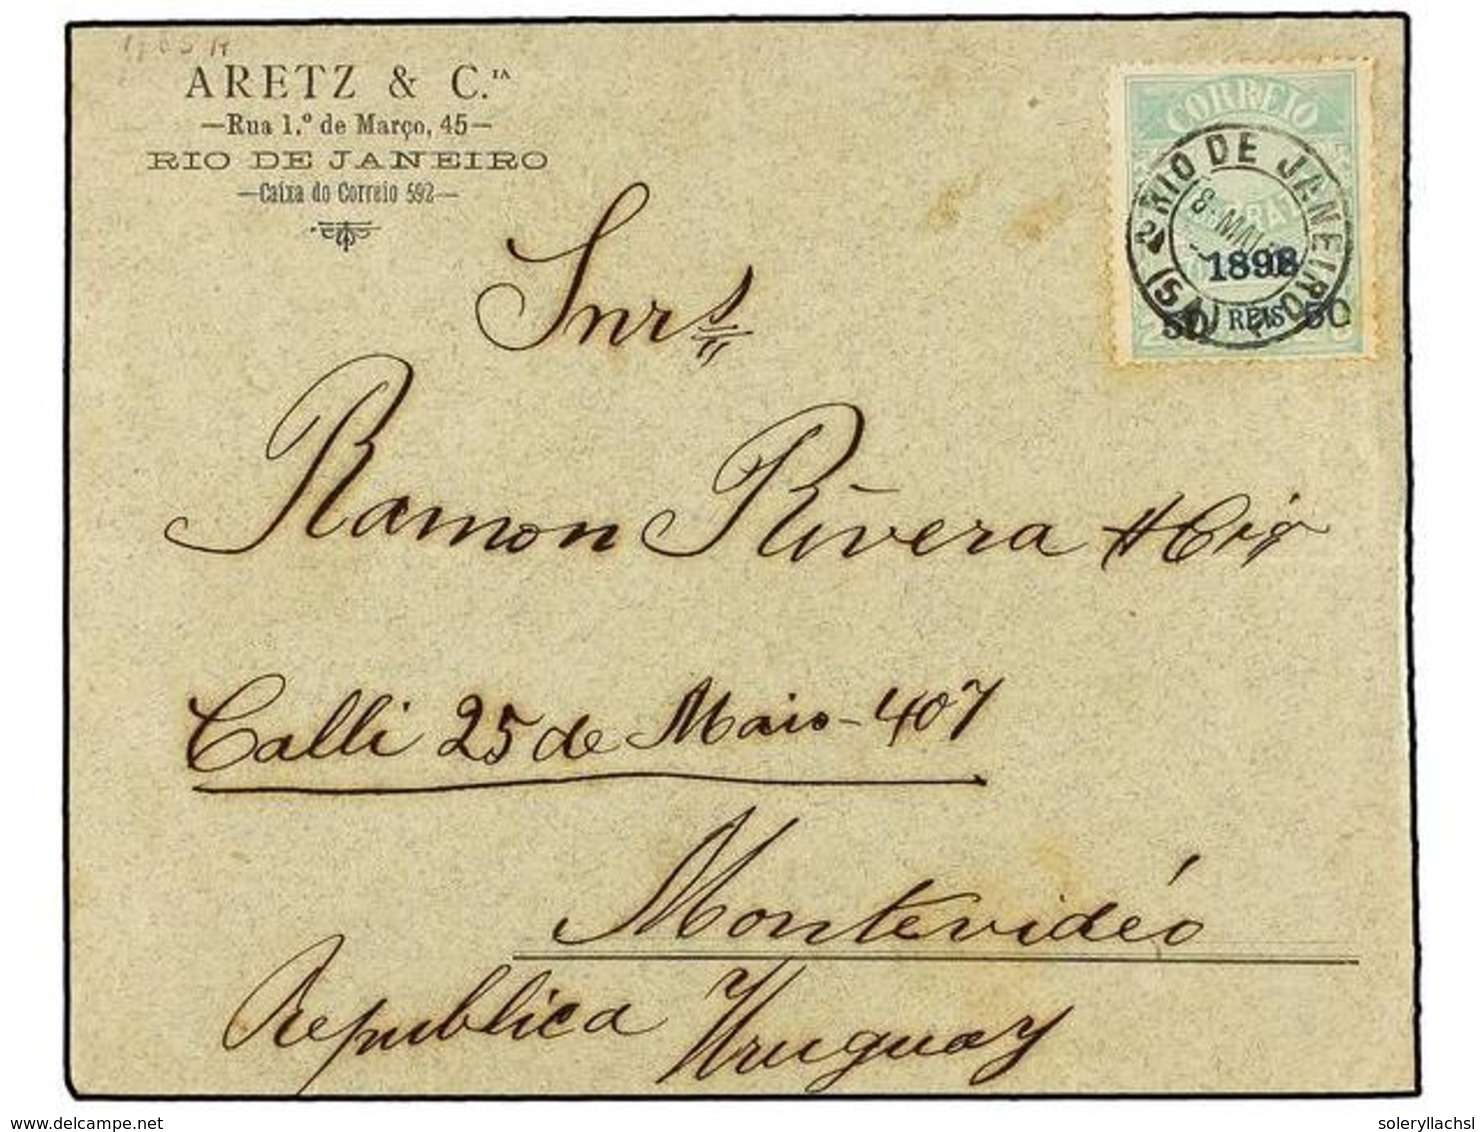 ARETZ & C.IA
—Rua 1.º de Março, 45—
RIO DE JANEIRO
—Caixa do Correio 592—
CORREIO
RIO DE JANEIRO
1898
50 REIS 50
Snrs
Ramon Rivera & Cia
Calli 25 de Maio-407
Montevidéo
Republica Uruguay
delcampe.net
soleryllachsl